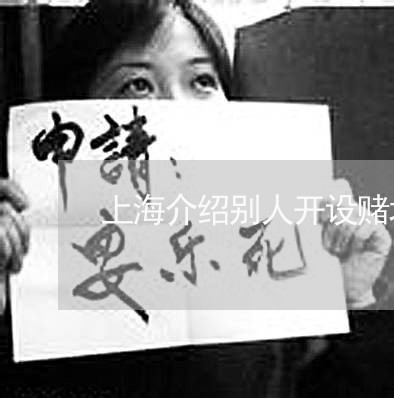 申請：
上海介绍别人开设赌
安乐死